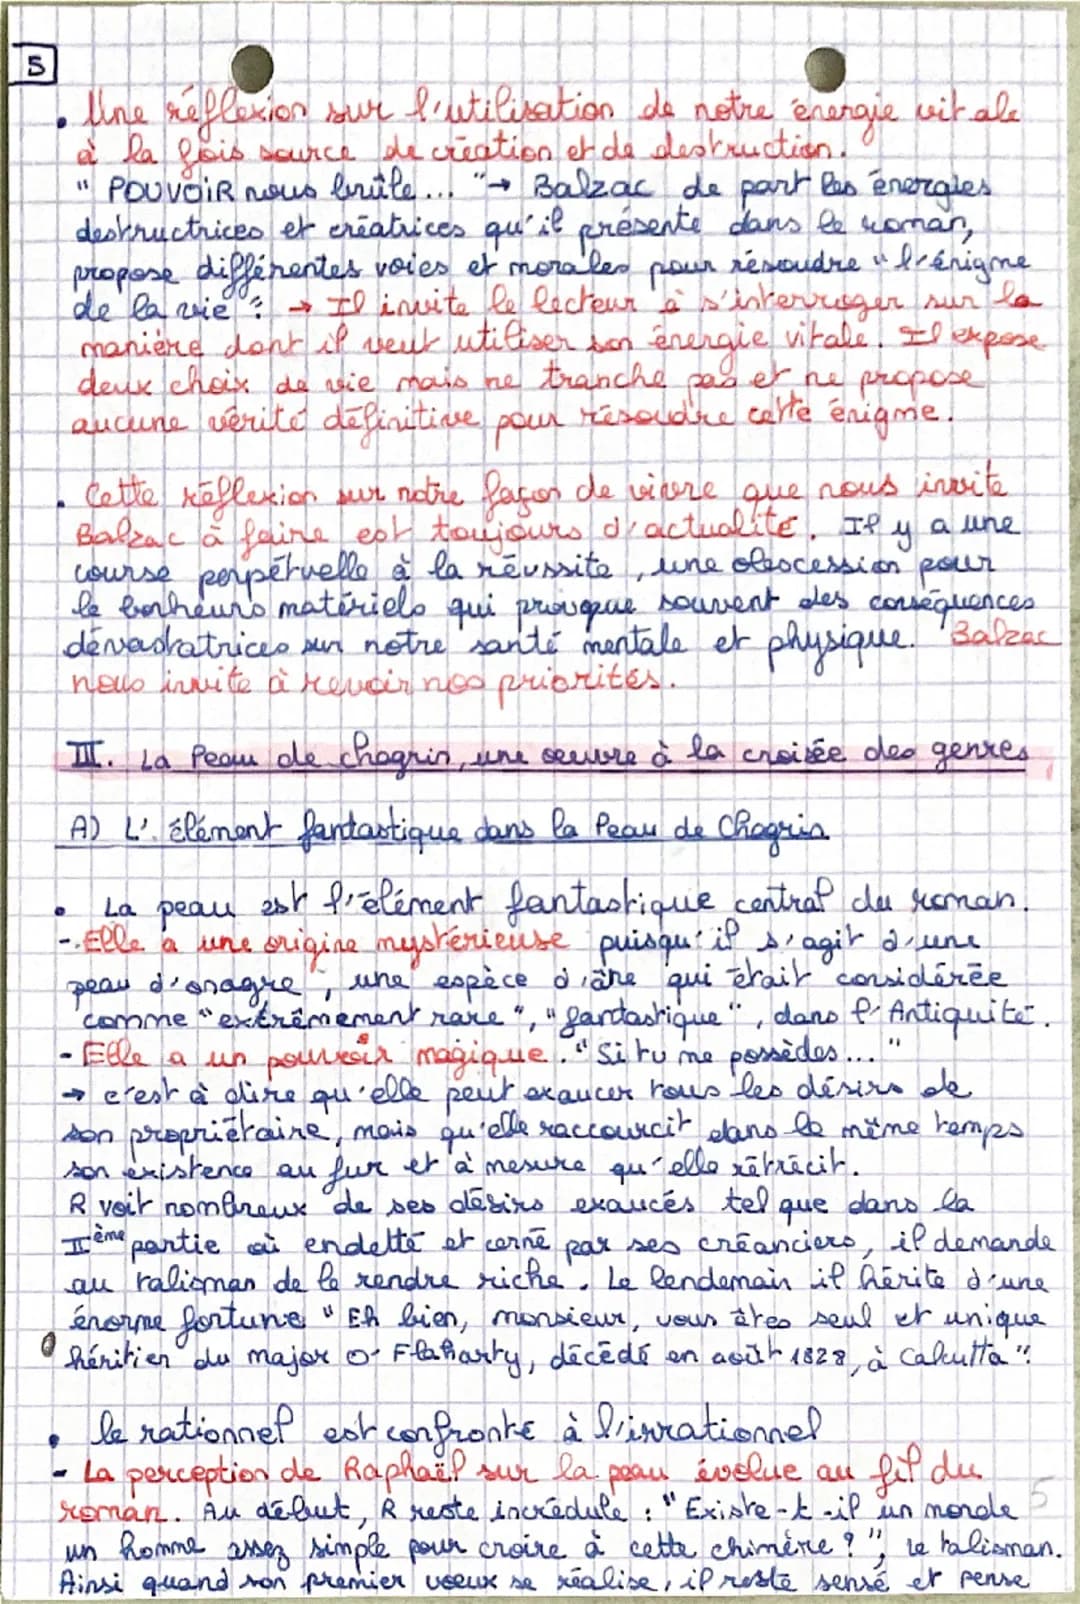 5
• Une réflexion sur l'utilisation de notre énergie vitale
à la fois source de création et de destruction.
" POUVOIR nous brûle... " → Balzac de part les énergies
destructrices et créatrices qu'il présente dans le roman,
propose différentes voies et morales pour résoudre " l'énigme
de la vie ". → Il invite le lecteur à s'interroger sur la
manière dont il veut utiliser son énergie vitale. Il expose
deux choix de vie mais ne tranche pas et ne propose
aucune vérité définitive pour résoudre cette énigme.
• Cette réflexion sur notre façon de vivre que nous invite
Balzac à faire est toujours d'actualité. Il y a une
course perpétuelle à la réussite, une obscession pour
le bonheurs matériels qui provoque souvent des conséquences
dévastatrices sur notre santé mentale et physique. Balzac
nous invite à revoir nos priorités.
III. La Peau de chagrin, une oeuvre à la croisée des genres
A) L'élément fantastique dans la Peau de Chagrin
• La peau est l'élément fantastique central du roman.
-. Elle a une origine mystérieuse puisqu'il s'agit d'une
peau d'onagre, une espèce d'âne qui était considérée
comme "extrêmement rare", "fantastique", dans l'Antiquité.
- Elle a un pouvoir magique. "Si tu me possèdes..."
→ c'est à dire qu'elle peut exaucer tous les désirs de
son propriétaire, mais qu'elle raccourcit dans le même temps
son existence au fur et à mesure qu'elle rétrécit.
R voit nombreux de ses désirs exaucés tel que dans la
IIème partie où endetté et cerné par ses créanciers, il demande
au talisman de le rendre riche. Le lendemain il hérite d'une
énorme fortune " Eh bien, monsieur, vous êtes seul et unique
héritier du major O' Flaharty, décédé en août 1828, à Calcutta ".
• le rationnel est confronté à l'irrationnel
- La perception de Raphaël sur la peau évolue au fil du
roman. Au début, R reste incrédule : " Existe-t-il un monde
5
un homme assez simple pour croire à cette chimère ? ", le talisman.
Ainsi quand son premier voeux se réalise, il reste sensé et pense